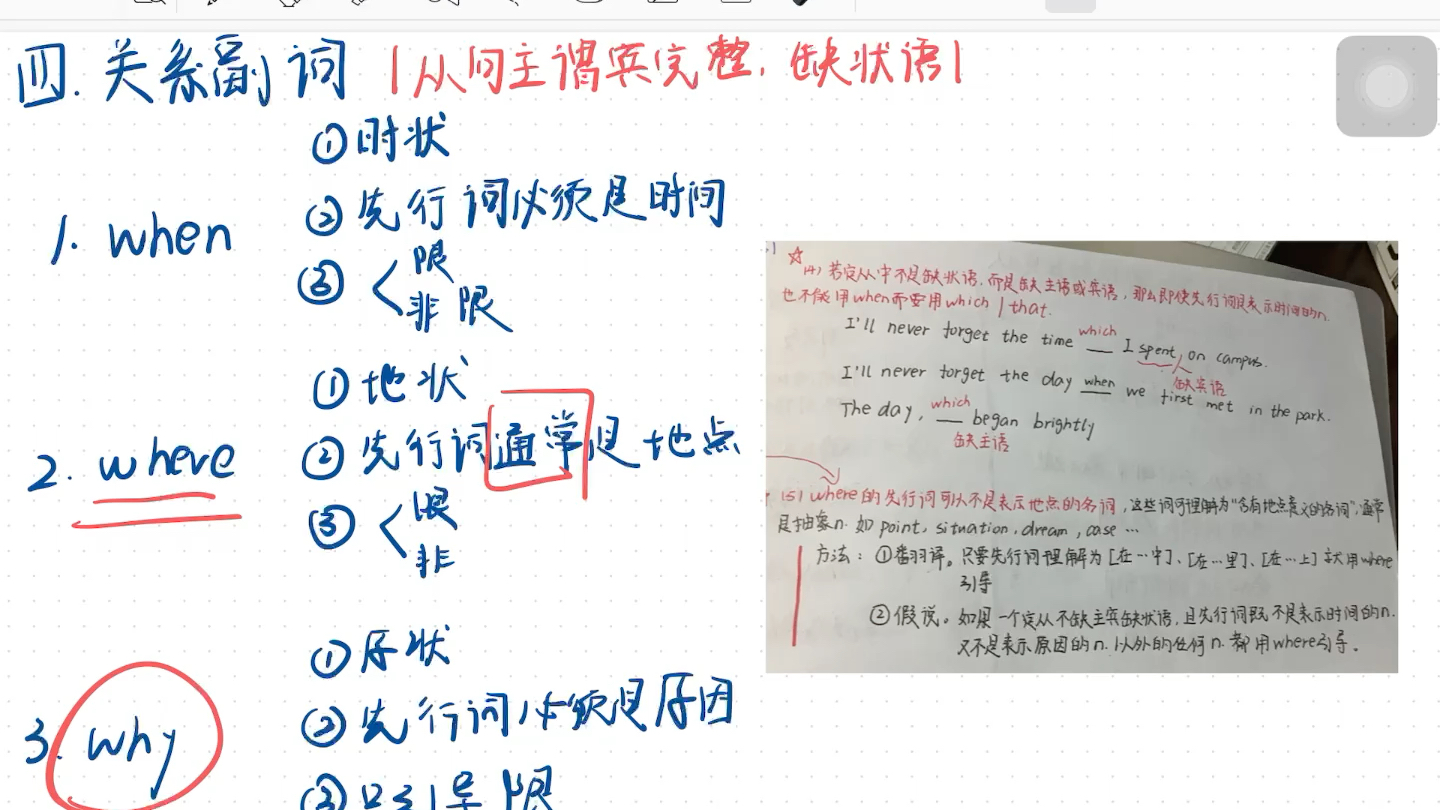 四. 关系副词 |从句主谓宾完整, 缺状语|
1. when
① 时状
② 先行词必须是时间
③ < 限
非限
2. where
① 地状
② 先行词通常是地点
③ < 限
非
3. why
① 原状
② 先行词必须是原因
③ 只引导限
☆
(4) 若定从中不是缺状语, 而是缺主语或宾语, 那么即使先行词是表示时间的n.
也不能用when而要用which / that.
I'll never forget the time which I spent on campus.
缺宾语
I'll never forget the day when we first met in the park.
The day, which began brightly
缺主语
(5) where的先行词可以不是表示地点的名词, 这些词可理解为"含有地点意义的名词", 通常
是抽象n. 如 point, situation, dream, case …
方法: ①翻译。只要先行词理解为[在…中]、[在…里]、[在…上]就用where
引导
②假说。如果一个定从不缺主宾缺状语, 且先行词既不是表示时间的n.
又不是表示原因的n. 以外的任何n. 都用where引导。